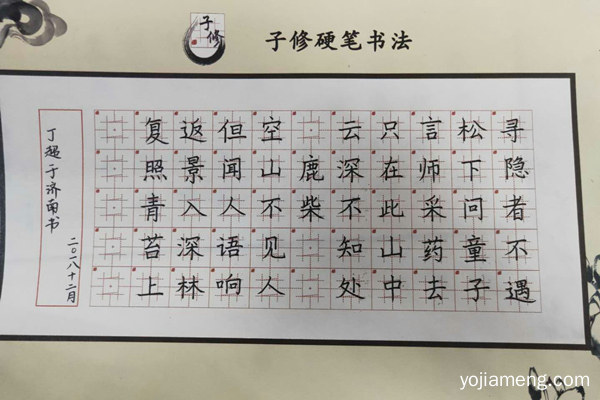 子修
子修硬笔书法
寻隐者不遇
松下问童子
言师采药去
只在此山中
云深不知处
鹿柴
空山不见人
但闻人语响
返景入深林
复照青苔上
丁超于济南书
二〇一八十二月
yojiameng.com